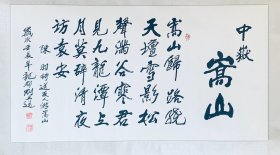 中嶽
嵩山
嵩山歸路繞
天壇雪影松
聲滿谷寒君
見九龍潭上
月莫辭清夜
訪袁安
陳羽詩送友人遊嵩山
歲次壬辰年